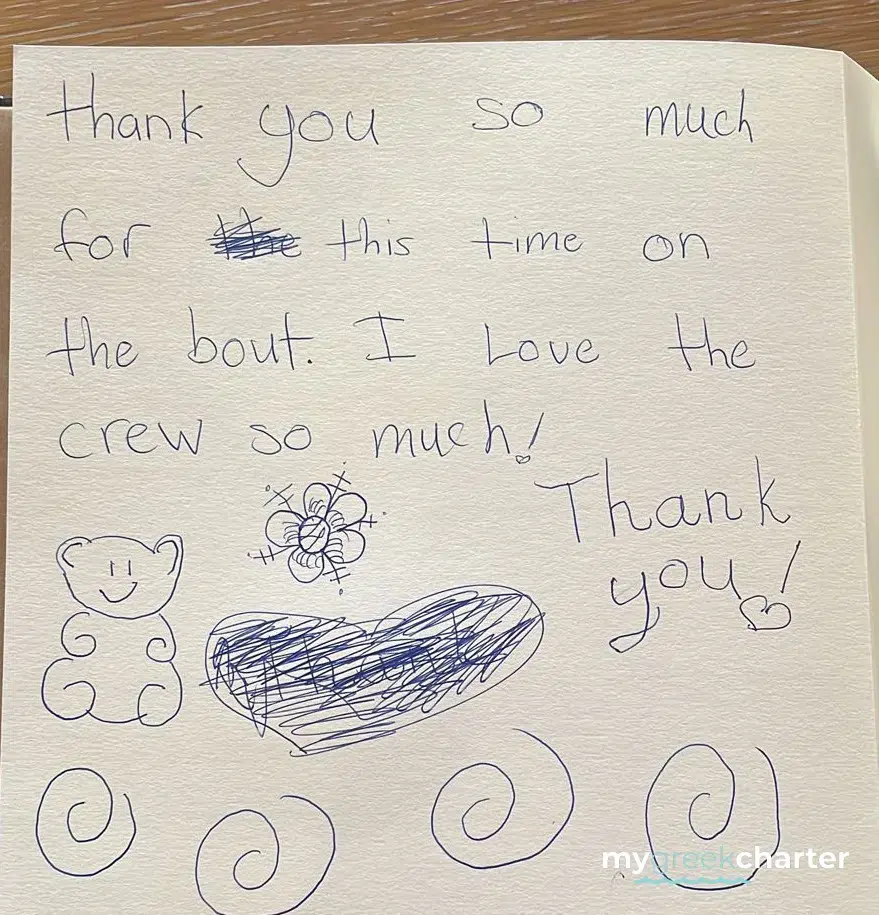 thank you so much
for the this time on
the bout. I Love the
crew so much!
Thank
you!
mygreekcharter